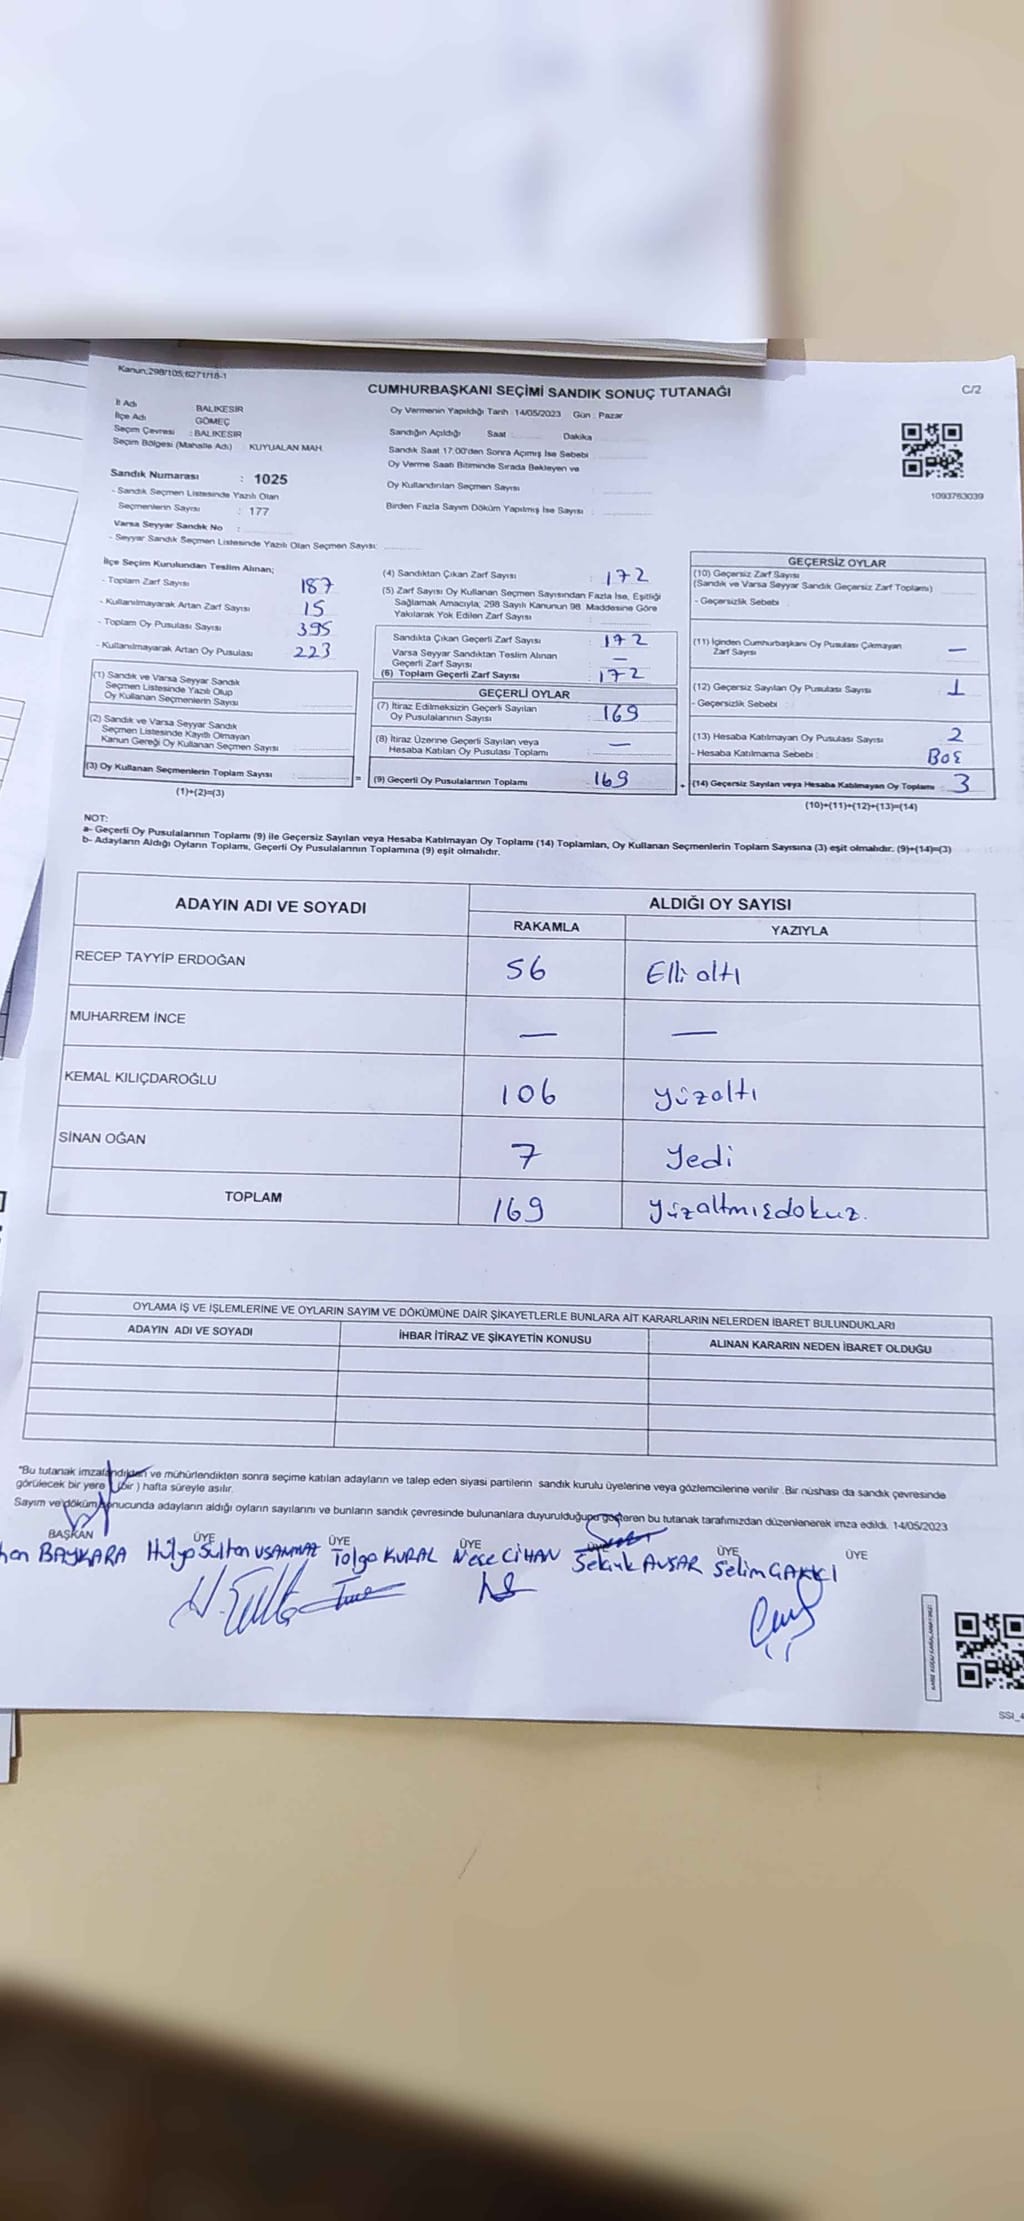 Kanun;298/105;6271/18-1
CUMHURBAŞKANI SEÇİMİ SANDIK SONUÇ TUTANAĞI
C/2
İl Adı BALIKESİR
İlçe Adı GÖMEÇ
Seçim Çevresi : BALIKESİR
Seçim Bölgesi (Mahalle Adı) : KUYUALAN MAH.
Oy Vermenin Yapıldığı Tarih :14/05/2023 Gün : Pazar
Sandığın Açıldığı Saat Dakika
Sandık Saat 17:00'den Sonra Açılmış İse Sebebi
Oy Verme Saati Bitiminde Sırada Bekleyen ve
Oy Kullandırılan Seçmen Sayısı
Birden Fazla Sayım Döküm Yapılmış İse Sayısı :
1093763039
Sandık Numarası : 1025
- Sandık Seçmen Listesinde Yazılı Olan
Seçmenlerin Sayısı : 177
Varsa Seyyar Sandık No :
- Seyyar Sandık Seçmen Listesinde Yazılı Olan Seçmen Sayısı:
İlçe Seçim Kurulundan Teslim Alınan;
- Toplam Zarf Sayısı 187
- Kullanılmayarak Artan Zarf Sayısı 15
- Toplam Oy Pusulası Sayısı 395
- Kullanılmayarak Artan Oy Pusulası 223
(1) Sandık ve Varsa Seyyar Sandık
Seçmen Listesinde Yazılı Olup
Oy Kullanan Seçmenlerin Sayısı
(2) Sandık ve Varsa Seyyar Sandık
Seçmen Listesinde Kayıtlı Olmayan
Kanun Gereği Oy Kullanan Seçmen Sayısı
(3) Oy Kullanan Seçmenlerin Toplam Sayısı :
(1)+(2)=(3)
=
(4) Sandıktan Çıkan Zarf Sayısı : 172
(5) Zarf Sayısı Oy Kullanan Seçmen Sayısından Fazla İse, Eşitliği
Sağlamak Amacıyla, 298 Sayılı Kanunun 98. Maddesine Göre
Yakılarak Yok Edilen Zarf Sayısı :
Sandıkta Çıkan Geçerli Zarf Sayısı : 172
Varsa Seyyar Sandıktan Teslim Alınan
Geçerli Zarf Sayısı : —
(6) Toplam Geçerli Zarf Sayısı : 172
GEÇERLİ OYLAR
(7) İtiraz Edilmeksizin Geçerli Sayılan
Oy Pusulalarının Sayısı : 169
(8) İtiraz Üzerine Geçerli Sayılan veya
Hesaba Katılan Oy Pusulası Toplamı : —
(9) Geçerli Oy Pusulalarının Toplamı : 169
+
GEÇERSİZ OYLAR
(10) Geçersiz Zarf Sayısı
(Sandık ve Varsa Seyyar Sandık Geçersiz Zarf Toplamı)
- Geçersizlik Sebebi :
(11) İçinden Cumhurbaşkanı Oy Pusulası Çıkmayan
Zarf Sayısı —
(12) Geçersiz Sayılan Oy Pusulası Sayısı 1
- Geçersizlik Sebebi :
(13) Hesaba Katılmayan Oy Pusulası Sayısı 2
- Hesaba Katılmama Sebebi : Boş
(14) Geçersiz Sayılan veya Hesaba Katılmayan Oy Toplamı : 3
(10)+(11)+(12)+(13)=(14)
NOT:
a- Geçerli Oy Pusulalarının Toplamı (9) ile Geçersiz Sayılan veya Hesaba Katılmayan Oy Toplamı (14) Toplamları, Oy Kullanan Seçmenlerin Toplam Sayısına (3) eşit olmalıdır. (9)+(14)=(3)
b- Adayların Aldığı Oyların Toplamı, Geçerli Oy Pusulalarının Toplamına (9) eşit olmalıdır.
ADAYIN ADI VE SOYADI
ALDIĞI OY SAYISI
RAKAMLA YAZIYLA
RECEP TAYYİP ERDOĞAN 56 Elli altı
MUHARREM İNCE — —
KEMAL KILIÇDAROĞLU 106 yüzaltı
SİNAN OĞAN 7 yedi
TOPLAM 169 yüzaltmışdokuz.
OYLAMA İŞ VE İŞLEMLERİNE VE OYLARIN SAYIM VE DÖKÜMÜNE DAİR ŞİKAYETLERLE BUNLARA AİT KARARLARIN NELERDEN İBARET BULUNDUKLARI
ADAYIN ADI VE SOYADI İHBAR İTİRAZ VE ŞİKAYETİN KONUSU ALINAN KARARIN NEDEN İBARET OLDUĞU
"Bu tutanak imzalandıktan ve mühürlendikten sonra seçime katılan adayların ve talep eden siyasi partilerin sandık kurulu üyelerine veya gözlemcilerine verilir. Bir nüshası da sandık çevresinde
görülecek bir yere (bir) hafta süreyle asılır.
Sayım ve döküm sonucunda adayların aldığı oyların sayılarını ve bunların sandık çevresinde bulunanlara duyurulduğunu gösteren bu tutanak tarafımızdan düzenlenerek imza edildi. 14/05/2023
BAŞKAN ÜYE ÜYE ÜYE ÜYE ÜYE
BAYKARA Hülya Sultan USANMAZ Tolga KURAL Neşe CİHAN Selçuk AVŞAR Selim